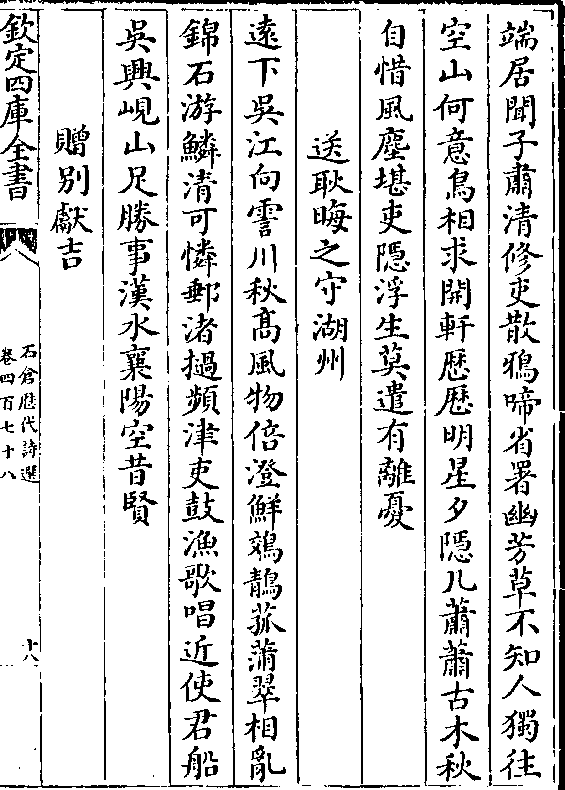 端居聞子肅清修吏散鴉啼省署幽芳草不知人獨往
空山何意鳥相求開軒歴歴明星夕隠几蕭蕭古木秋
自惜風塵堪吏隠浮生莫遣有離憂
送耿晦之守湖州
遠下吳江向霅川秋髙風物倍澄鮮鵁鶄菰蒲翠相亂
錦石游鱗清可憐郵渚撾頻津吏鼓漁歌唱近使君船
吳興峴山足勝事漢水襄陽空昔賢
贈别獻吉
欽定四庫全書
石倉歴代詩選
卷四百七十八
十八